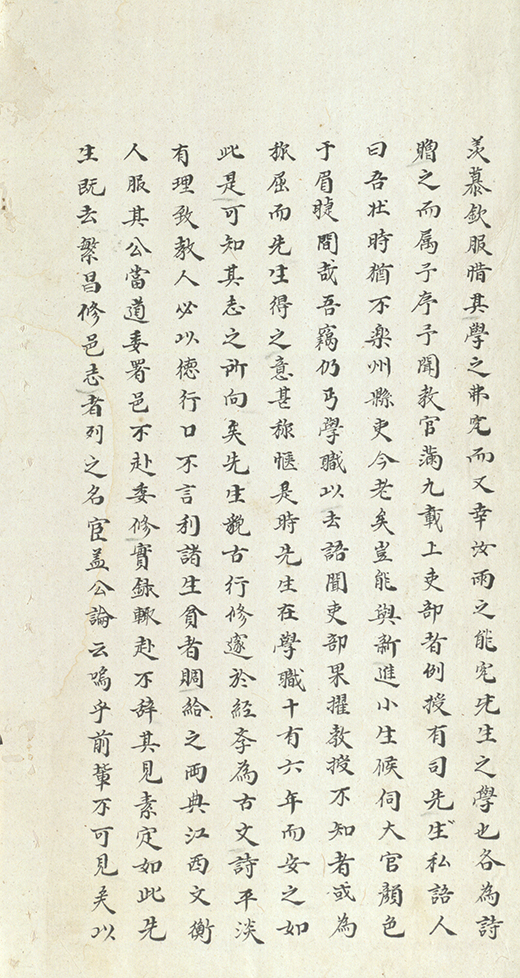 羡慕欽服惜其學之弗究而又幸汝雨之能究先生之學也各為詩
贈之而属予序予聞教官滿九載上吏部者例授有司先生私語人
曰吾壮時猶不樂州縣吏今老矣豈能與新進小生候伺大官顏色
于眉睫間哉吾竊仍丐學職以去語聞吏部果擢教授不知者或為
称屈而先生得之意甚称愜是時先生在學職十有六年而安之如
此是可知其志之所向矣先生貌古行修邃於經李為古文詩平淡
有理致教人必以德行口不言利諸生貧者賙給之両典江西文衡
人服其公當道委署邑不赴委修實錄輙赴不辞其見素定如此先
生既去繁昌修邑志者列之名宦盖公論云嗚乎前軰不可見矣以